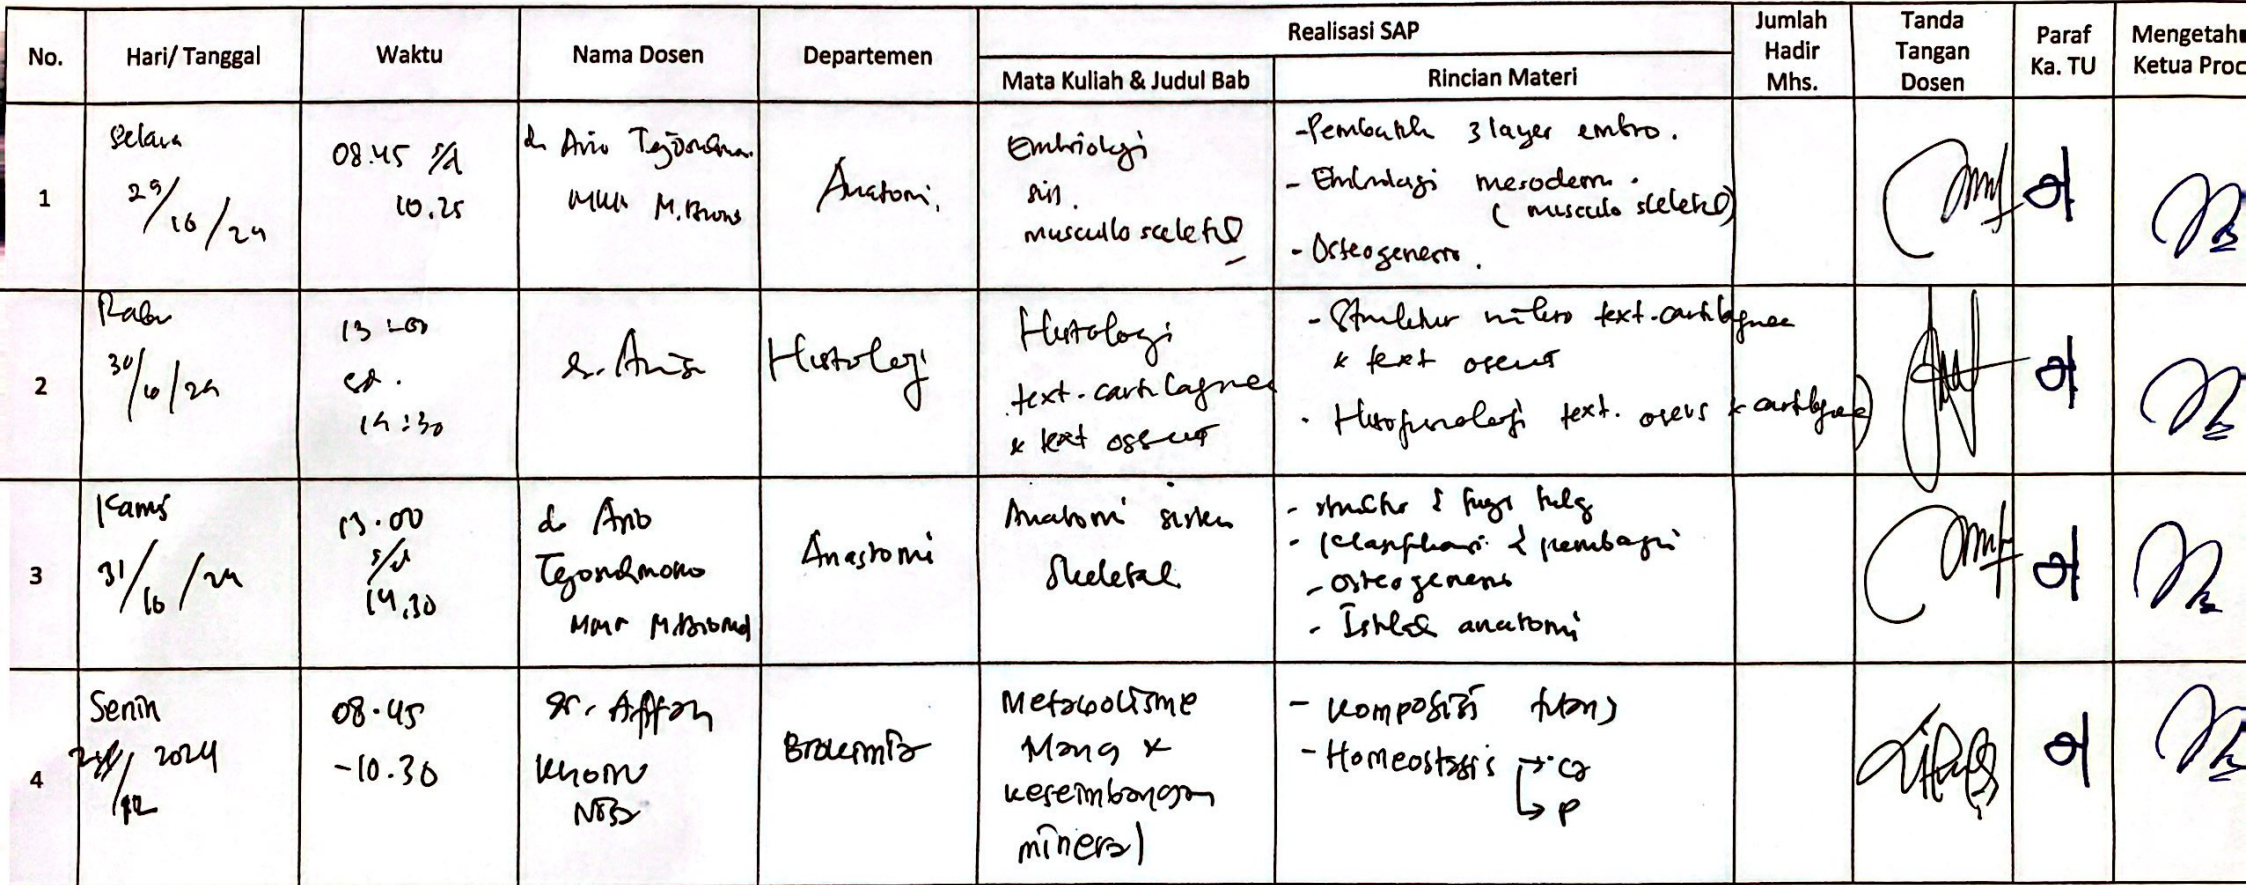 No.
Hari/ Tanggal
Waktu
Nama Dosen
Departemen
Realisasi SAP
Mata Kuliah & Judul Bab
Rincian Materi
Jumlah
Hadir
Mhs.
Tanda
Tangan
Dosen
Paraf
Ka. TU
Mengetahu
Ketua Proc
1
Selasa
29/10/24
08.45 s/d
10.25
dr Ario Tejosukmono
MMR M.Biomed
Anatomi.
Embriologi
sis.
musculloskeletal
- Pembentukan 3 layer embrio.
- Embriologi mesoderm.
(musculo skeletal)
- Osteogenesis.
2
Rabu
30/10/24
13:00
sd.
14:30
dr. Anis
Histologi
Histologi
text. cartilagnea
& text osseus
- Struktur mikro text. cartilagnea
& text oseus
- Histofisiologi text. oseus & cartilagnea
3
Kamis
31/10/24
13.00
s/d
14.30
dr Ario
MMR M.Biomed
Anastomi
Anatomi sistem
Skeletal
- struktur & fungsi tulg
- klasifikasi & pembagian
- osteogenesis
- Istilah anatomi
4
Senin
2024
08.45
-10.30
dr. Affan
Biokimia
Metabolisme
Tulang &
keseimbangan
mineral
- Komposisi tulang
- Homeostasis → Ca
→ P